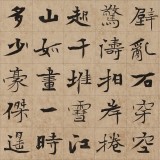 壁亂石穿空
驚濤拍岸捲
起千堆雪江
山如畫一時
多少豪傑遙